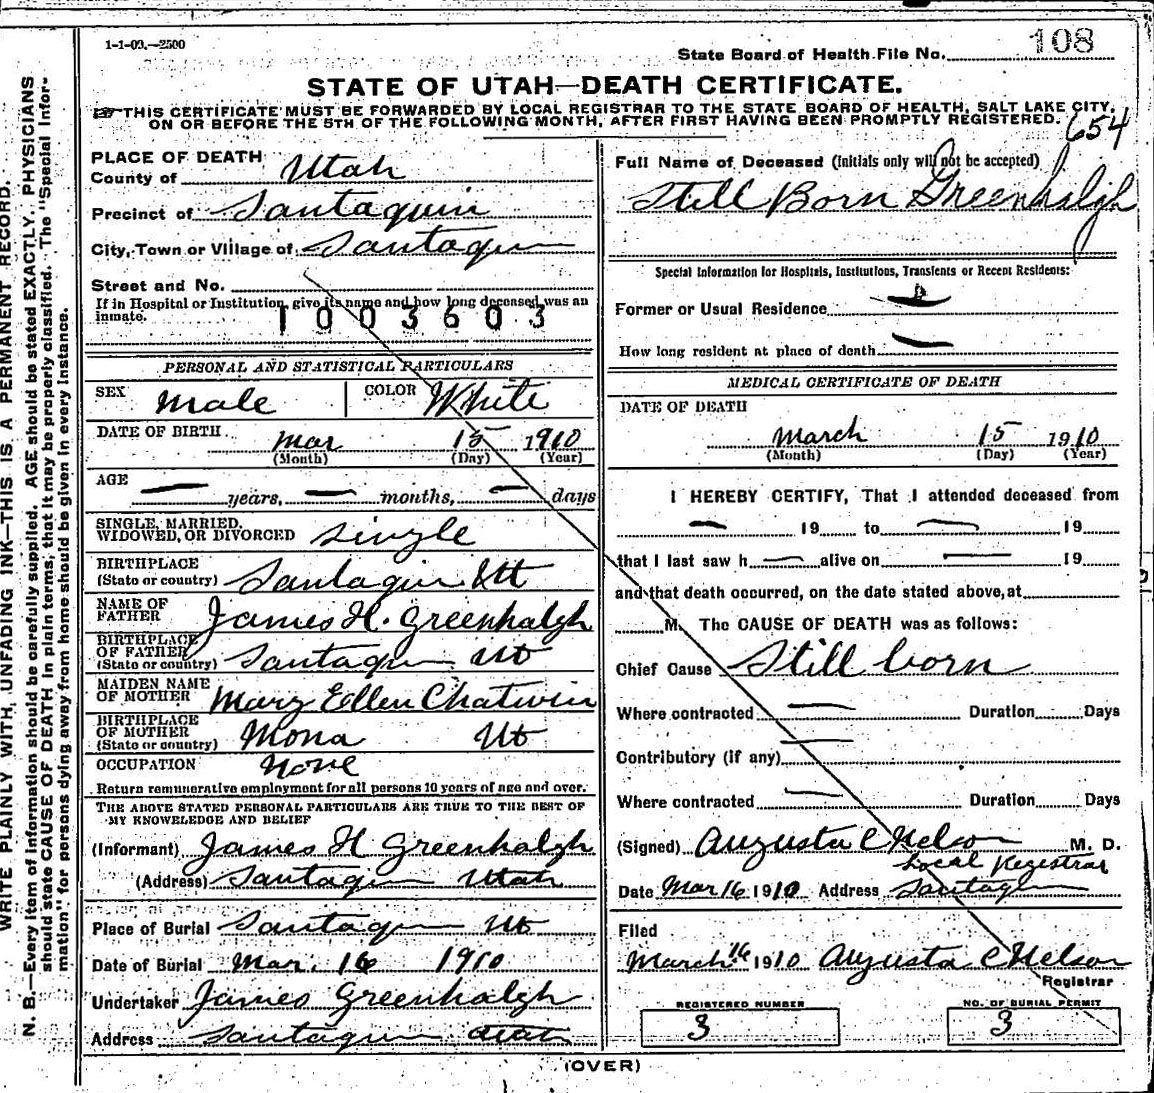 1-1-09.—2500
State Board of Health File No. 108
STATE OF UTAH—DEATH CERTIFICATE.
THIS CERTIFICATE MUST BE FORWARDED BY LOCAL REGISTRAR TO THE STATE BOARD OF HEALTH, SALT LAKE CITY,
ON OR BEFORE THE 5TH OF THE FOLLOWING MONTH, AFTER FIRST HAVING BEEN PROMPTLY REGISTERED.
654
PLACE OF DEATH
County of Utah
Precinct of Santaquin
City, Town or Village of Santaquin
Street and No.
If in Hospital or Institution, give its name and how long deceased was an
inmate.
1003603
PERSONAL AND STATISTICAL PARTICULARS
SEX Male COLOR White
DATE OF BIRTH Mar 15 1910
(Month) (Day) (Year)
AGE — years, — months, — days
SINGLE, MARRIED,
WIDOWED, OR DIVORCED Single
BIRTHPLACE
(State or country) Santaquin Ut
NAME OF
FATHER James H. Greenhalgh
BIRTHPLACE
OF FATHER
(State or country) Santaquin Ut
MAIDEN NAME
OF MOTHER Mary Ellen Chatwin
BIRTHPLACE
OF MOTHER
(State or country) Mona Ut
OCCUPATION None
Return remunerative employment for all persons 10 years of age and over.
THE ABOVE STATED PERSONAL PARTICULARS ARE TRUE TO THE BEST OF
MY KNOWLEDGE AND BELIEF
(Informant) James H Greenhalgh
(Address) Santaquin Utah
Place of Burial Santaquin Ut
Date of Burial Mar. 16 1910
Undertaker James Greenhalgh
Address Santaquin Utah
Full Name of Deceased (Initials only will not be accepted)
Still Born Greenhalgh
Special Information for Hospitals, Institutions, Transients or Recent Residents:
Former or Usual Residence
How long resident at place of death —
MEDICAL CERTIFICATE OF DEATH
DATE OF DEATH
March 15 1910
(Month) (Day) (Year)
I HEREBY CERTIFY, That I attended deceased from
— 19 to — 19
that I last saw h — alive on — 19
and that death occurred, on the date stated above, at
M. The CAUSE OF DEATH was as follows:
Chief Cause Still born
Where contracted — Duration Days
Contributory (if any) —
Where contracted — Duration Days
(Signed) Augusta C Nelson M. D.
Local Registrar
Date Mar 16 1910 Address Santaquin
Filed
March 16 1910 Augusta C Nelson
Registrar
REGISTERED NUMBER
3
NO. OF BURIAL PERMIT
3
(OVER)
WRITE PLAINLY WITH UNFADING INK—THIS IS A PERMANENT RECORD.
N. B.—Every item of information should be carefully supplied. AGE should be stated EXACTLY. PHYSICIANS
should state CAUSE OF DEATH in plain terms, that it may be properly classified. The "Special Infor-
mation" for persons dying away from home should be given in every instance.